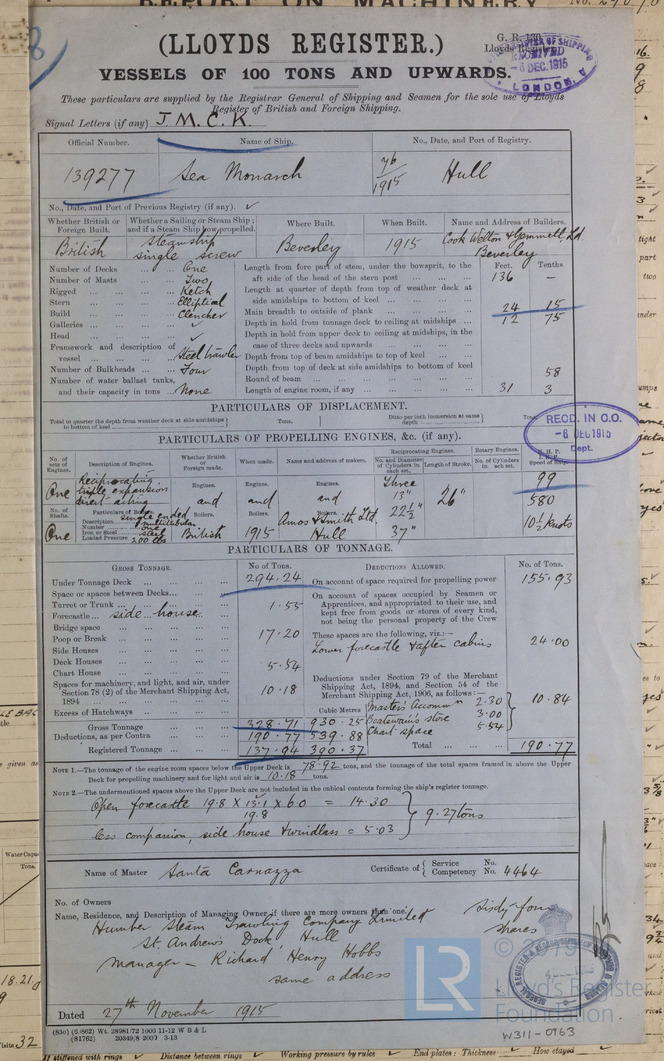 REPORT ON MACHINERY No.
(LLOYDS REGISTER.)
G. R. 130
Lloyds Register
VESSELS OF 100 TONS AND UPWARDS.
REGISTER OF SHIPPING
RECEIVED
-6 DEC.1915
LONDON.
These particulars are supplied by the Registrar General of Shipping and Seamen for the sole use of Lloyds
Register of British and Foreign Shipping.
Signal Letters (if any) J.M.C.K.
Official Number. Name of Ship. No., Date, and Port of Registry.
139277 Sea Monarch 76/1915 Hull
No., Date, and Port of Previous Registry (if any).
Whether British or Foreign Built. Whether a Sailing or Steam Ship; and if a Steam Ship how propelled. Where Built. When Built. Name and Address of Builders.
British Steamship single screw Beverley 1915 Cook Welton & Gemmell, Ld. Beverley
Feet. Tenths.
Number of Decks One
Number of Masts Two
Rigged Ketch
Stern Elliptical
Build Clencher
Galleries
Head
Framework and description of vessel Steel trawler
Number of Bulkheads Four
Number of water ballast tanks, and their capacity in tons None
Length from fore part of stem, under the bowsprit, to the aft side of the head of the stern post 136 —
Length at quarter of depth from top of weather deck at side amidships to bottom of keel
Main breadth to outside of plank 24 15
Depth in hold from tonnage deck to ceiling at midships 12 75
Depth in hold from upper deck to ceiling at midships, in the case of three decks and upwards
Depth from top of beam amidships to top of keel
Depth from top of deck at side amidships to bottom of keel
Round of beam 58
Length of engine room, if any 31 3
PARTICULARS OF DISPLACEMENT.
Total to quarter the depth from weather deck at side amidships to bottom of keel Tons. Ditto per inch immersion at same depth Tons.
RECD. IN C.O.
-6 DEC 1915
Dept.
PARTICULARS OF PROPELLING ENGINES, &c. (if any).
No. of sets of Engines. Description of Engines. Whether British or Foreign made. When made. Name and address of makers. Reciprocating Engines. No. and Diameter of Cylinders in each set. Length of Stroke. Rotary Engines. No. of Cylinders in each set. N.H.P. I.H.P. Speed of Ship.
One Reciprocating triple expansion direct acting Engines. and Engines. and Engines. and Three 13" 22½" 37" 26" 99 580 10½ knots
No. of Shafts. Particulars of Boilers. Boilers. Boilers. Boilers.
One Description single ended multitubular
Number one
Iron or Steel steel
Loaded Pressure 200 lbs
British 1915 Amos & Smith Ltd, Hull
PARTICULARS OF TONNAGE.
GROSS TONNAGE. No of Tons. DEDUCTIONS ALLOWED. No. of Tons.
Under Tonnage Deck 294.24
Space or spaces between Decks
Turret or Trunk
Forecastle side house 1.55
Bridge space
Poop or Break 17.20
Side Houses
Deck Houses 5.54
Chart House
Spaces for machinery, and light, and air, under Section 78 (2) of the Merchant Shipping Act, 1894 10.18
Excess of Hatchways Cubic Metres
Gross Tonnage 328.71 930.25
Deductions, as per Contra 190.77 539.88
Registered Tonnage 137.94 390.37
On account of space required for propelling power 155.93
On account of spaces occupied by Seamen or Apprentices, and appropriated to their use, and kept free from goods or stores of every kind, not being the personal property of the Crew
These spaces are the following, viz.:—
Lower forecastle & after cabins 24.00
Deductions under Section 79 of the Merchant Shipping Act, 1894, and Section 54 of the Merchant Shipping Act, 1906, as follows:—
Master's Accommn 2.30
Boatswain's store 3.00
Chart space 5.54
10.84
Total 190.77
NOTE 1.—The tonnage of the engine room spaces below the Upper Deck is 78.92 tons, and the tonnage of the total spaces framed in above the Upper
Deck for propelling machinery and for light and air is 10.18 tons.
NOTE 2.—The undermentioned spaces above the Upper Deck are not included in the cubical contents forming the ship's register tonnage.
Open forecastle 19.8 X 13.1 X 6.0 = 14.30
19.8
Less companion, side house & windlass = 5.03
9.27 tons
Name of Master Santa Carnazza Certificate of { Service No. Competency No. 4464
No. of Owners
Name, Residence, and Description of Managing Owner if there are more owners than one.
Humber Steam Trawling Company Limited Sixty-four
St. Andrews Dock Hull shares
Manager - Richard Henry Hobbs
same address
Dated 27th November 1915
© 2019
LR
Lloyd's Register
Foundation
W311-0963
(830) (5862) Wt. 28981/72 1000 11-12 W B & L
(81762) 20349/8 2000 3-13
If stiffened with rings Distance between rings Working pressure by rules End plates: Thickness How stayed